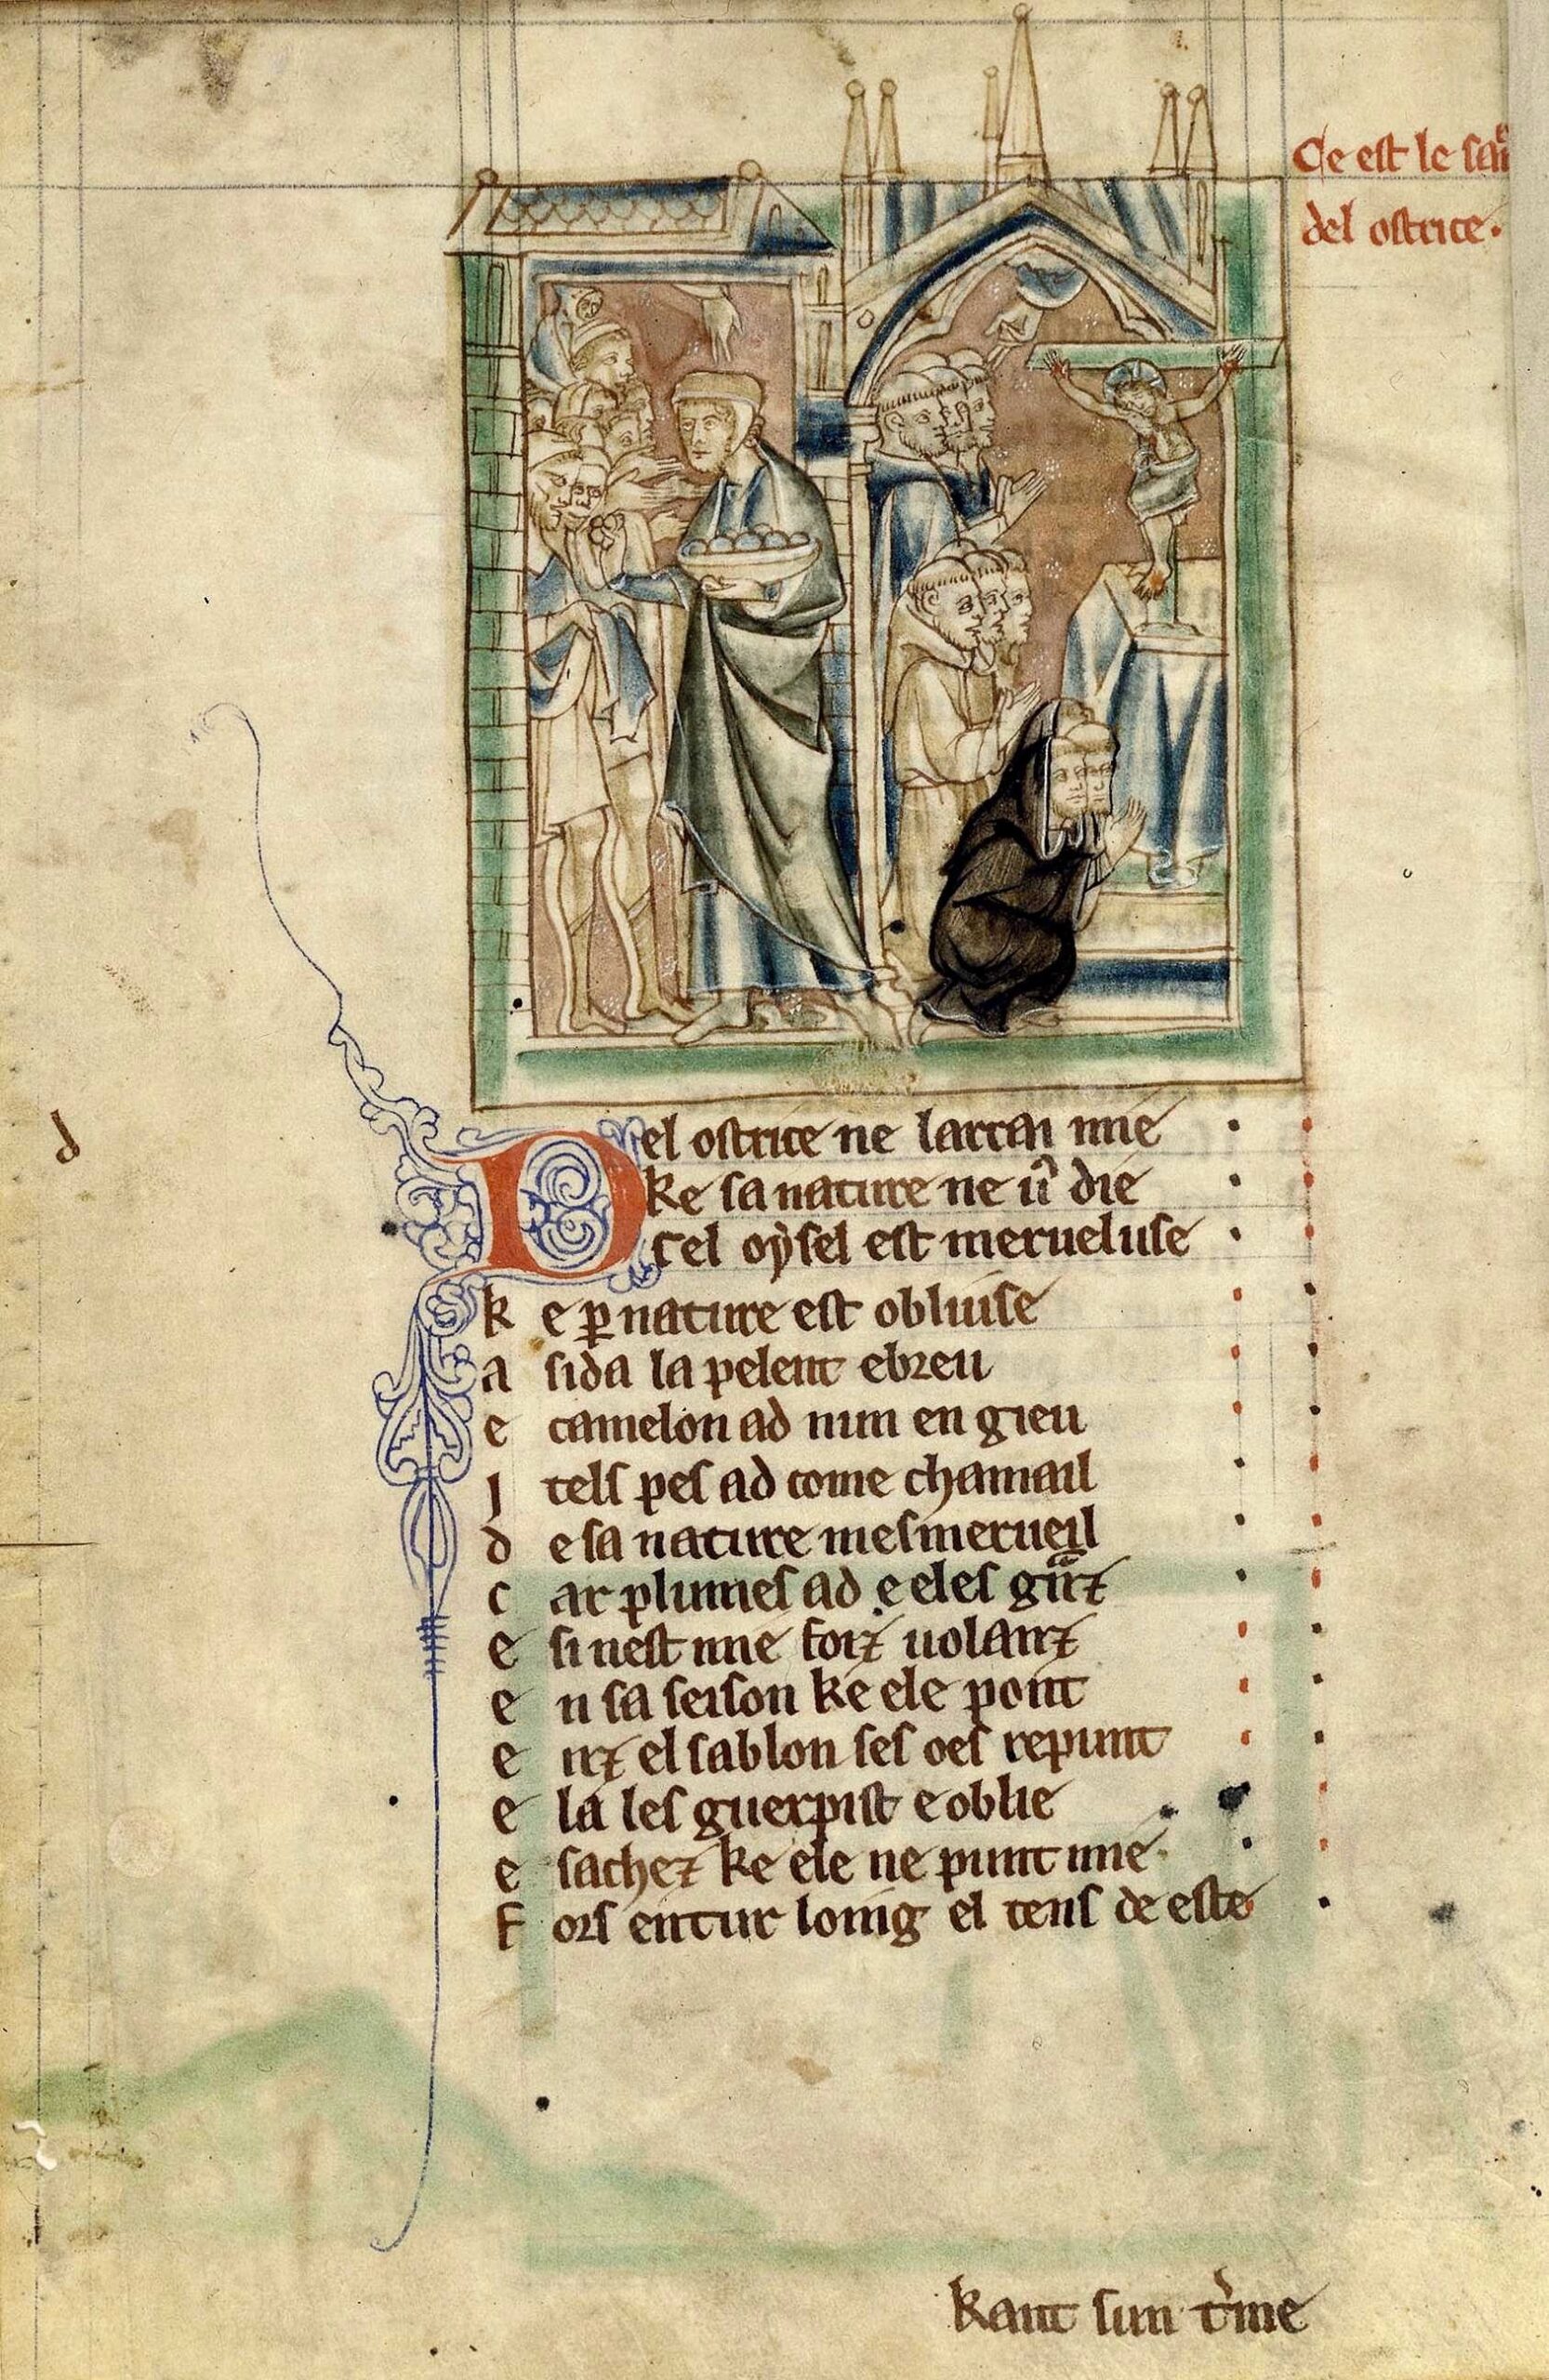 Ce est le
del ostrice.
d
Del ostrice ne larrai mie
Ke sa nature ne uͥ die
Cel oẏsel est merueluse
ke ꝑ nature est obliuise
asida la pelent ebreu
e camelon ad nun en gieu
J tels pes ad come chamail
de sa nature mes merueil
car plumes ad e eles
e si nest mie forz uolanz
en sa seison ke ele pont
enz el sablon ses oes repunt
e la les guerpist e oblie
e sachez ke ele ne punt mie
fors entur loing el tens de este
kant sun t͛me